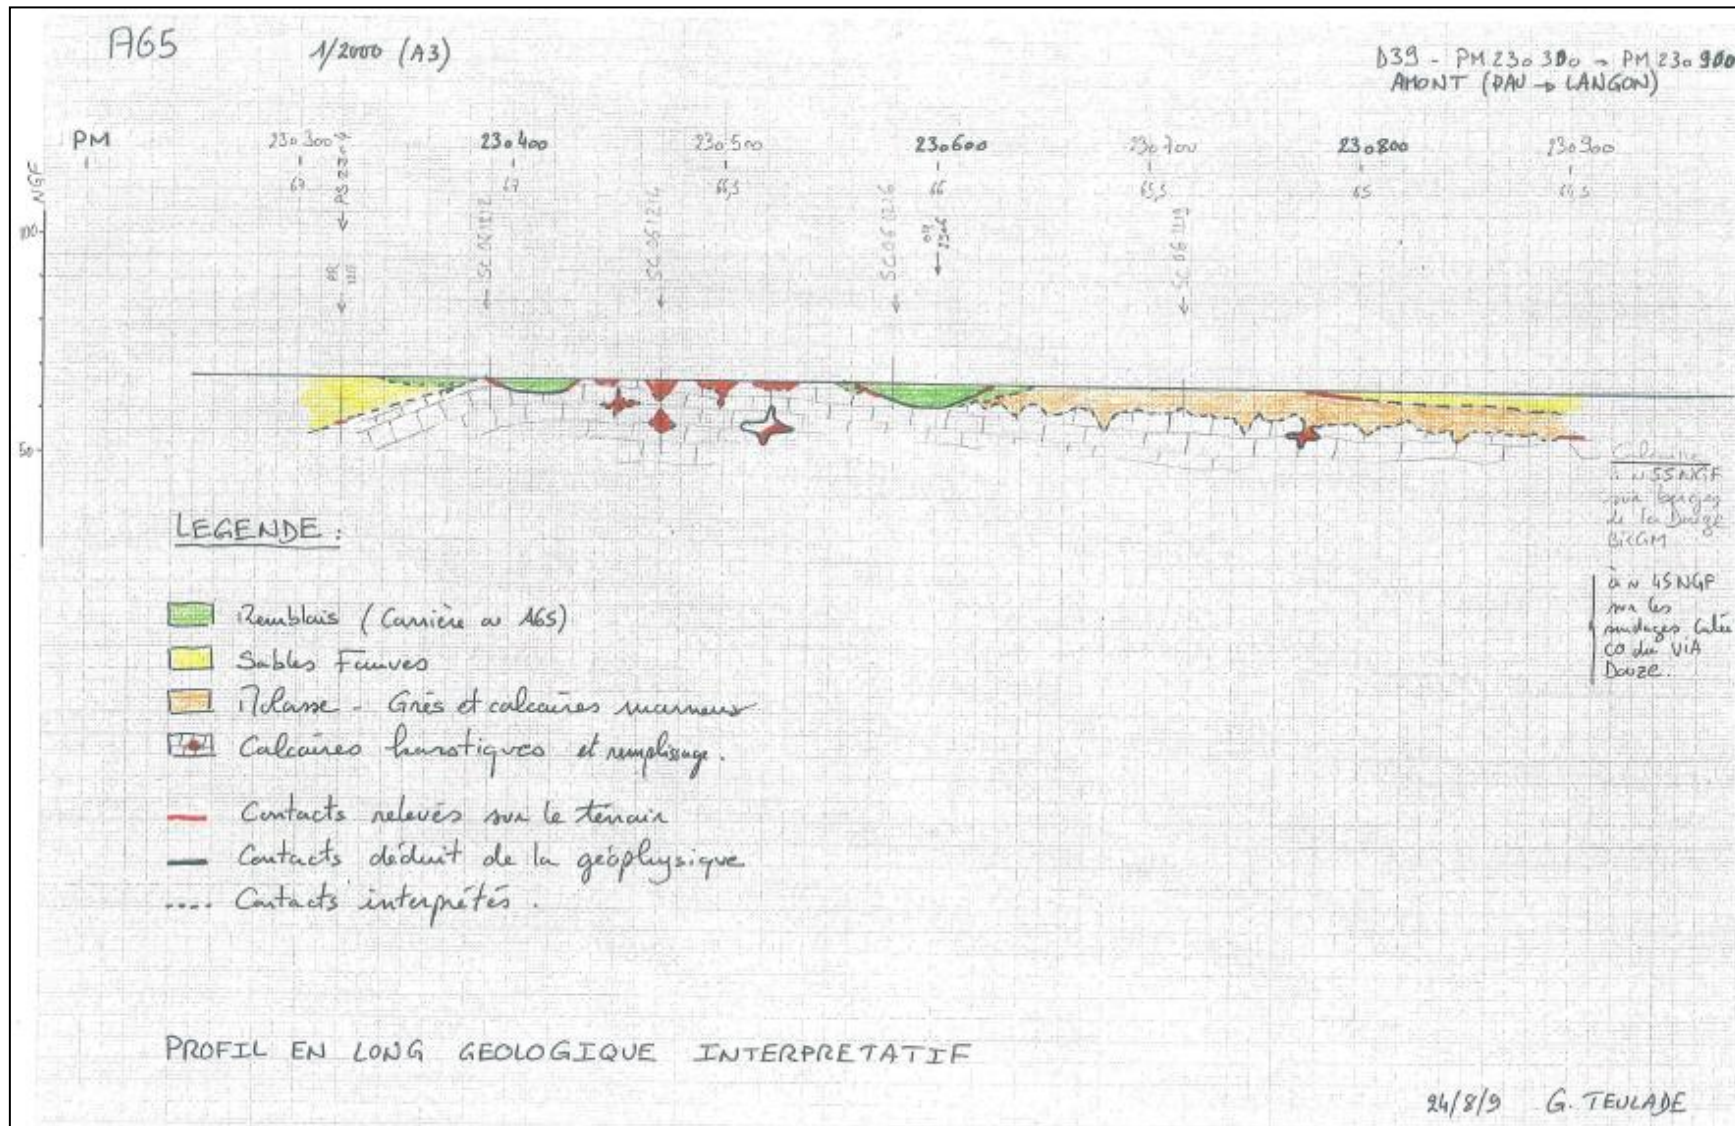 A65
1/2000 (A3)
D39 - PM 230 300 → PM 230 900
AMONT (PAU → LANGON)
PM
230 300
230 400
230 500
230 600
230 700
230 800
230 900
67
67
66,5
66
65,5
65
64,5
NGF
100
50
← PS
← SC 061212
← SC 061214
← SC 061216
←
← SC 061119
Calcaire
à ~ 55 NGF
sur berges
de la Douze
à ~ 45 NGF
sur les
sondages
CO du VIA
Douze.
LEGENDE :
Remblais (Carrière ou A65)
Sables Fauves
Molasse - Grès et calcaires marneux
Calcaires karstiques et remplissage.
Contacts relevés sur le terrain
Contacts déduit de la géophysique
Contacts interprétés.
PROFIL EN LONG GEOLOGIQUE INTERPRETATIF
24/8/9 G. TEULADE